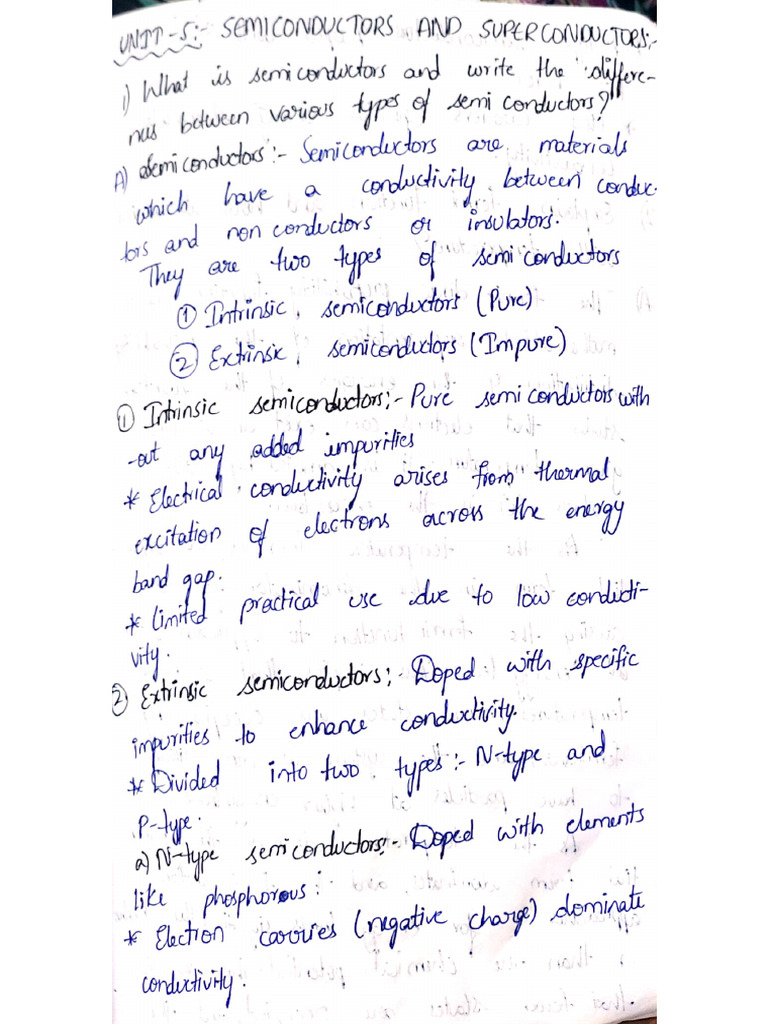 UNIT-5:- SEMICONDUCTORS AND SUPERCONDUCTORS:-
1) What is semiconductors and write the differe-
nces between various types of semi conductors?
A) Semiconductors:- Semiconductors are materials
which have a conductivity between conduc-
tors and non conductors or insulators.
They are two types of semi conductors
① Intrinsic semiconductors (Pure)
② Extrinsic semiconductors (Impure)
① Intrinsic semiconductors:- Pure semi conductors with
-out any added impurities
* Electrical conductivity arises from thermal
excitation of electrons across the energy
band gap.
* Limited practical use due to low conducti-
vity.
② Extrinsic semiconductors:- Doped with specific
impurities to enhance conductivity.
* Divided into two types:- N-type and
P-type.
a) N-type semiconductors:- Doped with elements
like phosphorous.
* Election carries (negative charge) dominate
conductivity.